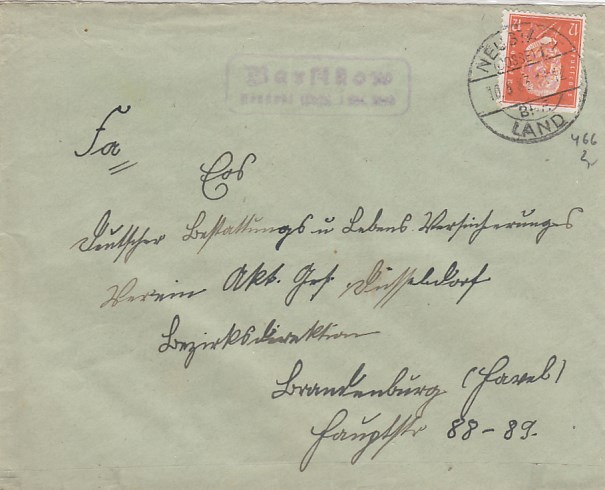 Barsikow
NEUSTADT
(DOSSE)
LAND
12
12
466
2,-
Fa
Eos
Deutscher Bestattungs u Lebens Versicherungs
Verein Akt. Ges. Düsseldorf
Bezirksdirektion
Brandenburg (Havel)
Hauptstr 88-89.